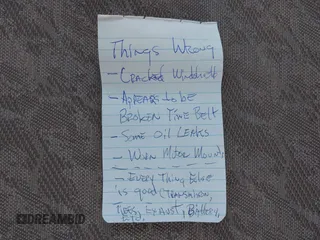 Things Wrong
- Cracked Windshield
- Appears to be
Broken Time Belt
- Some Oil Leaks
- Worn Motor Mounts
- Every Thing Else
is good (Transmission,
Tires, Exhaust, Battery,
ETC.
DREAMBID